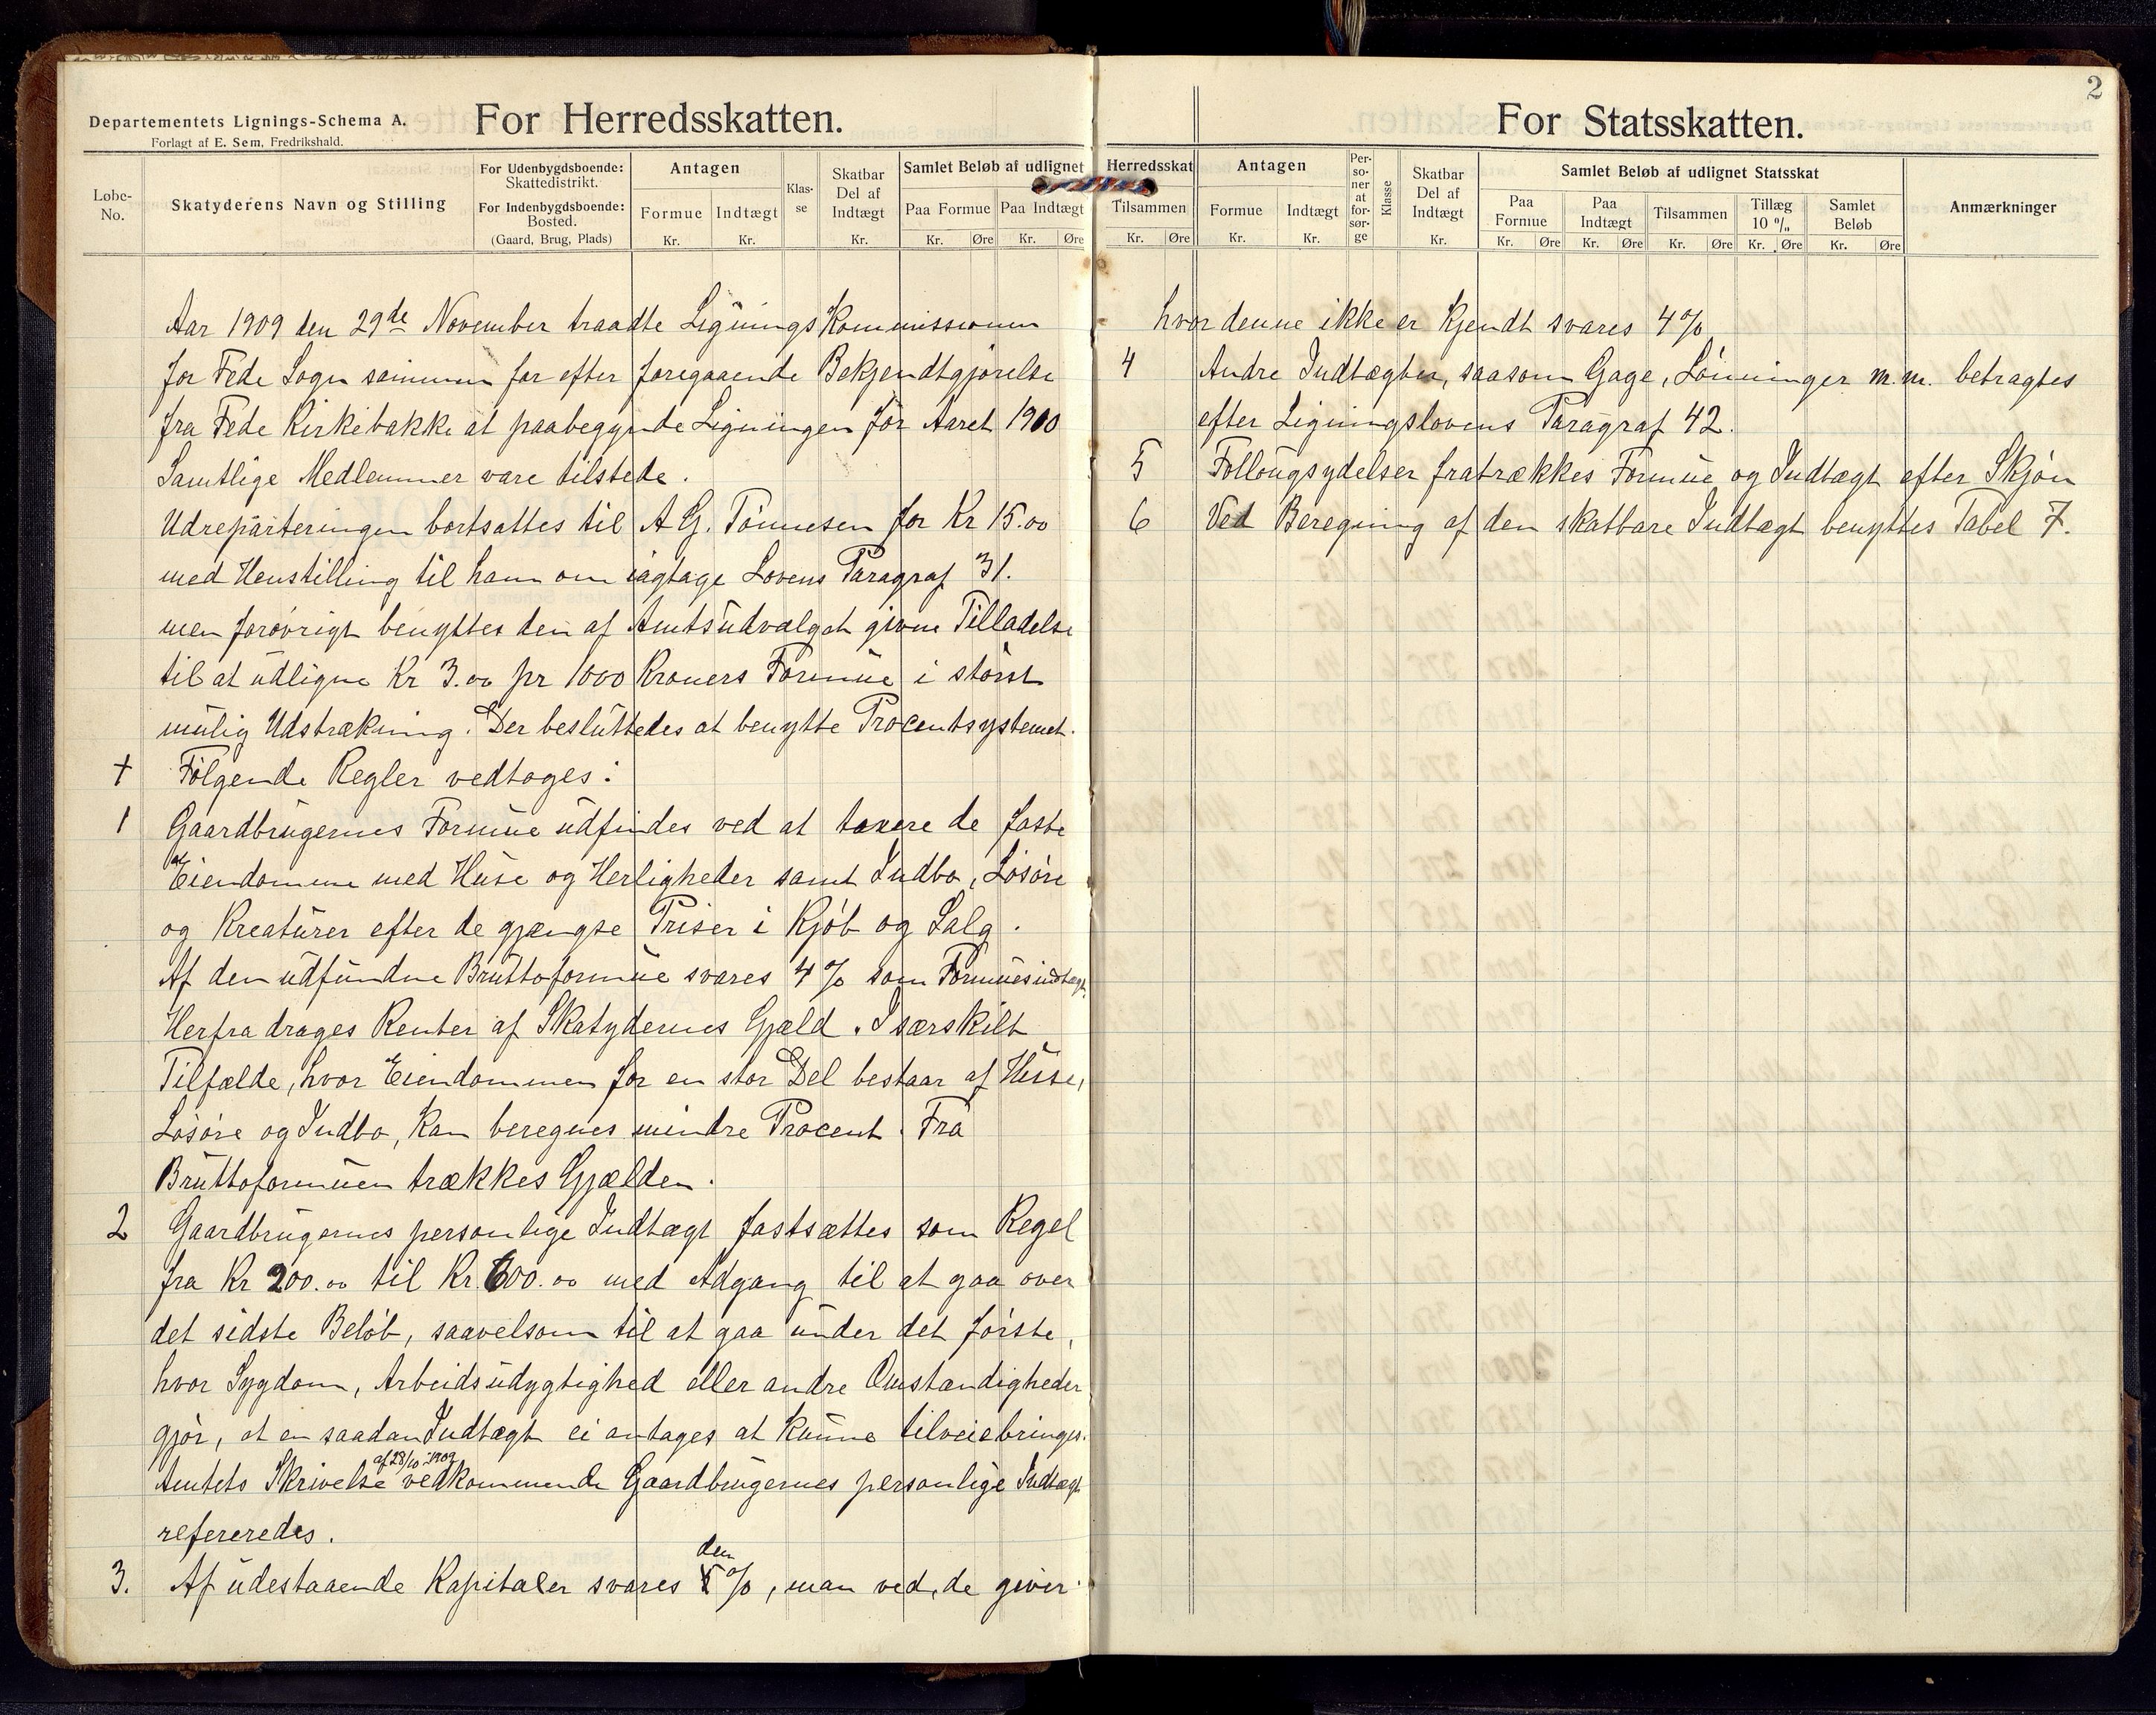 2
Departementets Lignings-Schema A.
Forlagt af E. Sem, Fredrikshald.
For Herredsskatten.
Løbe-No.
Skatyderens Navn og Stilling
For Udenbygdsboende: Skattedistrikt.
For Indenbygdsboende: Bosted.
(Gaard, Brug, Plads)
Antagen
Formue Kr.
Indtægt Kr.
Klas-se
Skatbar Del af Indtægt Kr.
Samlet Beløb af udlignet Herredsskat
Paa Formue Kr. Øre
Paa Indtægt Kr. Øre
Tilsammen Kr. Øre
For Statsskatten.
Antagen
Formue Kr.
Indtægt Kr.
Per-so-ner at for-sør-ge
Klasse
Skatbar Del af Indtægt Kr.
Samlet Beløb af udlignet Statsskat
Paa Formue Kr. Øre
Paa Indtægt Kr. Øre
Tilsammen Kr. Øre
Tillæg 10 % Kr. Øre
Samlet Beløb Kr. Øre
Anmærkninger
Aar 1909 den 29de November traadte LigningsKommissionen
for Fede Sogn sammen for efter foregaaende Bekjendtgjørelse
fra Fede Kirkebakke at paabegynde Ligningen for Aaret 1910
Samtlige Medlemmer vare tilstede.
Udreparteringen bortsattes til A G. Tønnesen for Kr 15.00
med Henstilling til ham om iagtage Lovens Paragraf 31.
men forøvrigt benyttes den af Amtsudvalget givne Tilladelse
til at udligne Kr 3.00 pr 1000 Kroners Formue i størst
mulig Udstrækning. Der besluttedes at benytte Procentsystemet.
+ Følgende Regler vedtoges:
1 Gaardbrugernes Formue udfindes ved at taxere de faste
Eiendomme med Huse og Herligheder samt Indbo, Løsøre
og Kreaturer efter de gjængse Priser i Kjøb og Salg.
Af den udfundne Bruttoformue svares 4 % som Formuesindtægt.
Herfra drages Renter af Skatydernes Gjæld. I særskilt
Tilfælde, hvor Eiendommen for en stor Del bestaar af Huse,
Løsøre og Indbo, kan beregnes mindre Procent. Fra
Bruttoformuen trækkes Gjælden.
2 Gaardbrugernes personlige Indtægt fastsættes som Regel
fra Kr 200.00 til Kr. 600.00 med Adgang til at gaa over
det sidste Beløb, saavelsom til at gaa under det første,
hvor Sygdom, Arbeidsudygtighed eller andre Omstændigheder
gjør, at en saadan Indtægt ei antages at kunne tilveiebringes.
af 28/10 1909
Amtets Skrivelse vedkommende Gaardbrugernes personlige Indtægt
refereredes.
den
3. Af udestaaende Kapitaler svares 5 %, man ved, de giver.
hvor denne ikke er Kjendt svares 4 %
4 Andre Indtægter, saasom Gage, Lønninger m.m. betragtes
efter Ligningslovens Paragraf 42.
5 Follougsydelser fratrækkes Formue og Indtægt efter Skjøn
6 Ved Beregning af den skatbare Indtægt benyttes Tabel 7.